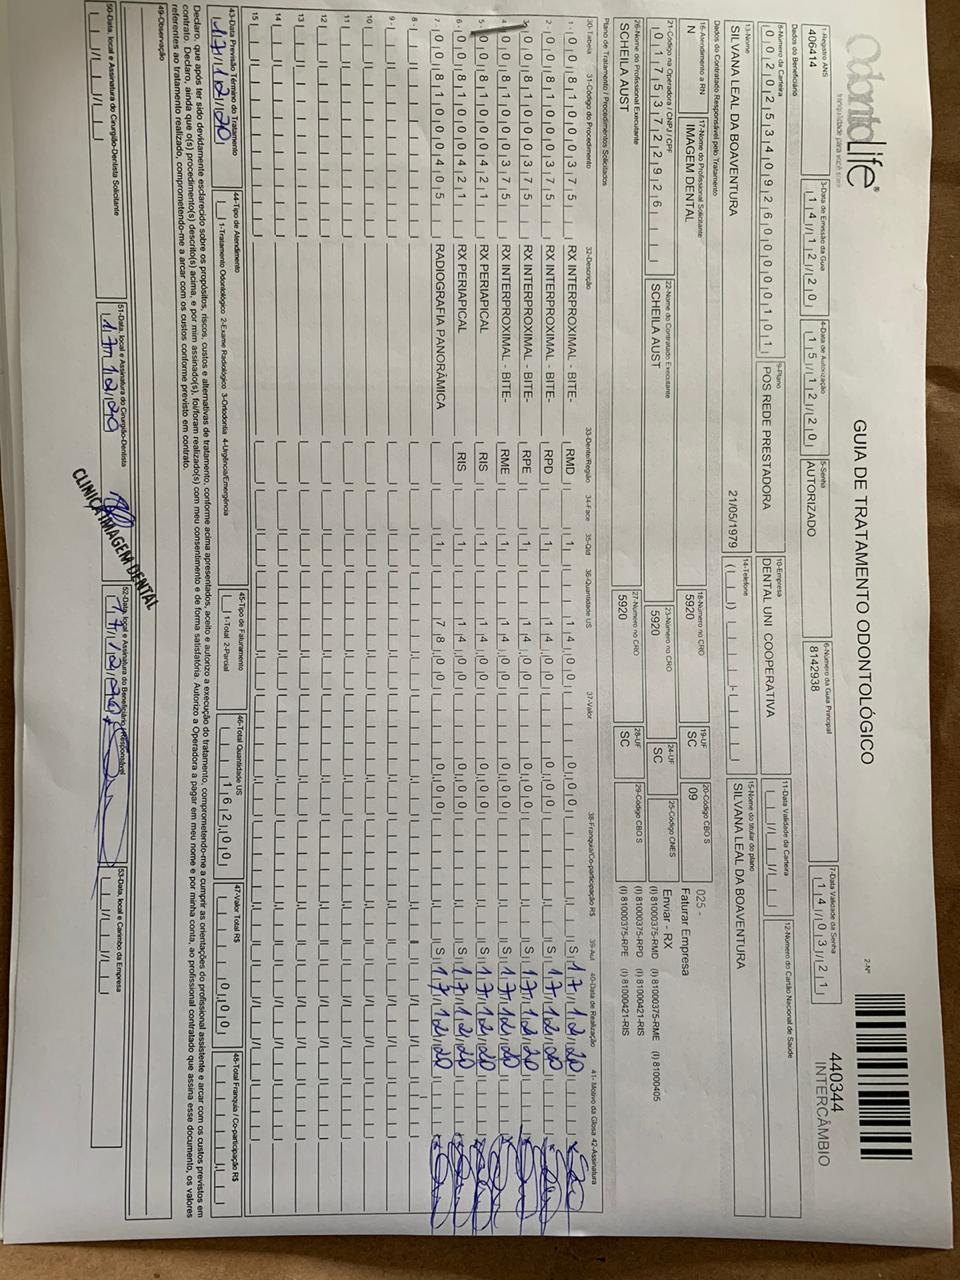 OdontoLife®
tranquilidade para você sorrir
GUIA DE TRATAMENTO ODONTOLÓGICO
2-Nº
440344
INTERCÂMBIO
1-Registro ANS
406414
3-Data de Emissão da Guia
14/12/20
4-Data de Autorização
15/12/20
5-Senha
AUTORIZADO
6-Número da Guia Principal
8142938
7-Data Validade da Senha
14/03/21
Dados do Beneficiário
8-Número da Carteira
00202534092600000101
9-Plano
POS REDE PRESTADORA
10-Empresa
DENTAL UNI COOPERATIVA
11-Data Validade da Carteira
12-Número do Cartão Nacional de Saúde
13-Nome
SILVANA LEAL DA BOAVENTURA
21/05/1979
14-Telefone
15-Nome do titular do plano
SILVANA LEAL DA BOAVENTURA
Dados do Contratado Responsável pelo Tratamento
16-Atendimento a RN
N
17-Nome do Profissional Solicitante
IMAGEM DENTAL
18-Número no CRO
5920
19-UF
SC
20-Código CBO S
09
025 -
Faturar Empresa
21-Código na Operadora / CNPJ / CPF
01753722926
22-Nome do Contratado Executante
SCHEILA AUST
23-Número no CRO
5920
24-UF
SC
25-Código CNES
Enviar - RX
26-Nome do Profissional Executante
SCHEILA AUST
27-Número no CRO
5920
28-UF
SC
29-Código CBO S
(I) 81000375-RMD (I) 81000375-RME (I) 81000405
(I) 81000375-RPD (I) 81000421-RIS
(I) 81000375-RPE (I) 81000421-RIS
Plano de Tratamento / Procedimentos Solicitados
30-Tabela 31-Código do Procedimento 32-Descrição 33-Dente/Região 34-Face 35-Qtd 36-Quantidade US 37-Valor 38-Franquia/Co-participação R$ 39-Aut 40-Data de Realização 41- Motivo da Glosa 42-Assinatura
1 - 00 81000375 RX INTERPROXIMAL - BITE- RMD 1 14,00 0,00 S 17/12/20
2 - 00 81000375 RX INTERPROXIMAL - BITE- RPD 1 14,00 0,00 S 17/12/20
3 - 00 81000375 RX INTERPROXIMAL - BITE- RPE 1 14,00 0,00 S 17/12/20
4 - 00 81000375 RX INTERPROXIMAL - BITE- RME 1 14,00 0,00 S 17/12/20
5 - 00 81000421 RX PERIAPICAL RIS 1 14,00 0,00 S 17/12/20
6 - 00 81000421 RX PERIAPICAL RIS 1 14,00 0,00 S 17/12/20
7 - 00 81000405 RADIOGRAFIA PANORÂMICA 1 78,00 0,00 S 17/12/20
8 -
9 -
10
11
12
13
14
15
43-Data Previsão Término do Tratamento
17/12/20
44-Tipo de Atendimento
1-Tratamento Odontológico 2-Exame Radiológico 3-Ortodontia 4-Urgência/Emergência
45-Tipo de Faturamento
1-Total 2-Parcial
46-Total Quantidade US
162,00
47-Valor Total R$
0,00
48-Total Franquia / Co-participação R$
Declaro, que após ter sido devidamente esclarecido sobre os propósitos, riscos, custos e alternativas de tratamento, conforme acima apresentados, aceito e autorizo a execução do tratamento, comprometendo-me a cumprir as orientações do profissional assistente e arcar com os custos previstos em
contrato. Declaro, ainda que o(s) procedimento(s) descrito(s) acima, e por mim assinado(s), foi/foram realizado(s) com meu consentimento e de forma satisfatória. Autorizo a Operadora a pagar em meu nome e por minha conta, ao profissional contratado que assina esse documento, os valores
referentes ao tratamento realizado, comprometendo-me a arcar com os custos conforme previsto em contrato.
49-Observação
50-Data, local e Assinatura do Cirurgião-Dentista Solicitante
51-Data, local e Assinatura do Cirurgião-Dentista
17/12/20
CLINICA IMAGEM DENTAL
52-Data, local e Assinatura do Beneficiário / Responsável
17/12/20
53-Data, local e Carimbo da Empresa